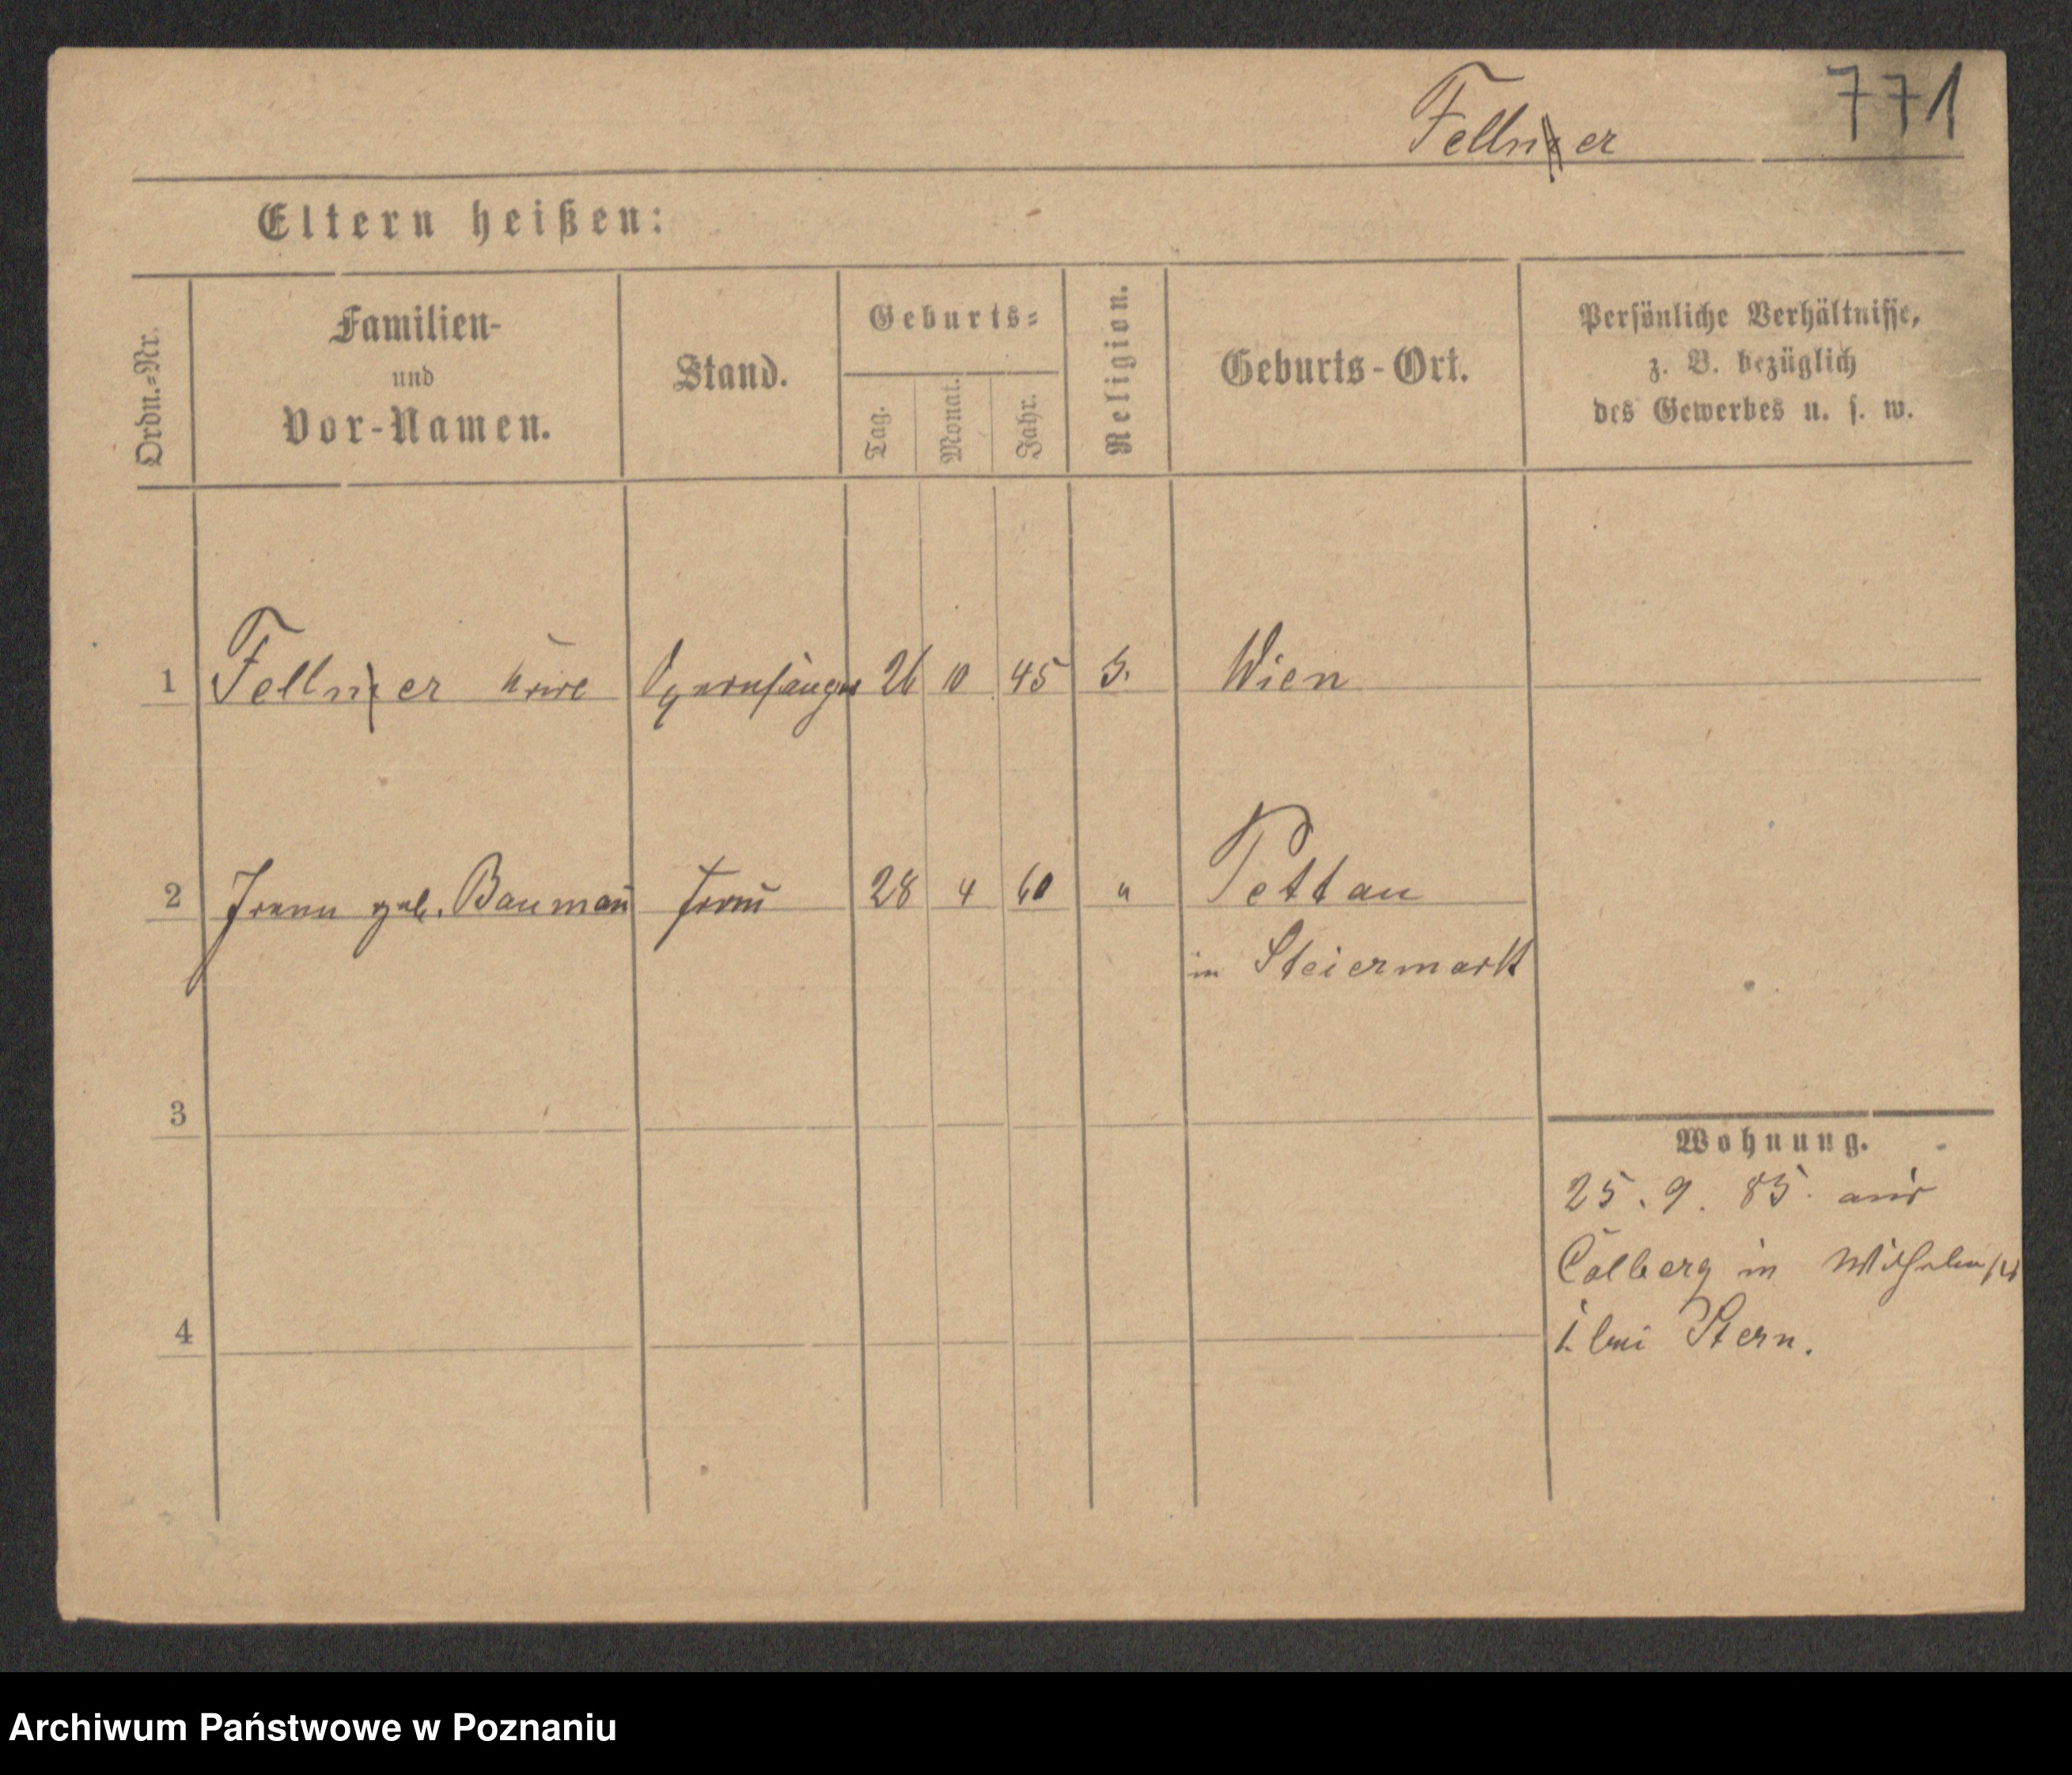 771
Fellner
Eltern heißen:
Ordn.-Nr.
Familien-
und
Vor-Namen.
Stand.
Geburts-
Tag.
Monat.
Jahr.
Religion.
Geburts-Ort.
Persönliche Verhältnisse,
z. B. bezüglich
des Gewerbes u. s. w.
1 Fellner Opernsänger 26 10 45 Wien
2 geb. Baumañ Frau 28 4 60 " Pettau
in Steiermark
3
Wohnung.
25. 9. 85. aus
Colberg in Wilhelmstr
1. bei Stern.
4
Archiwum Państwowe w Poznaniu